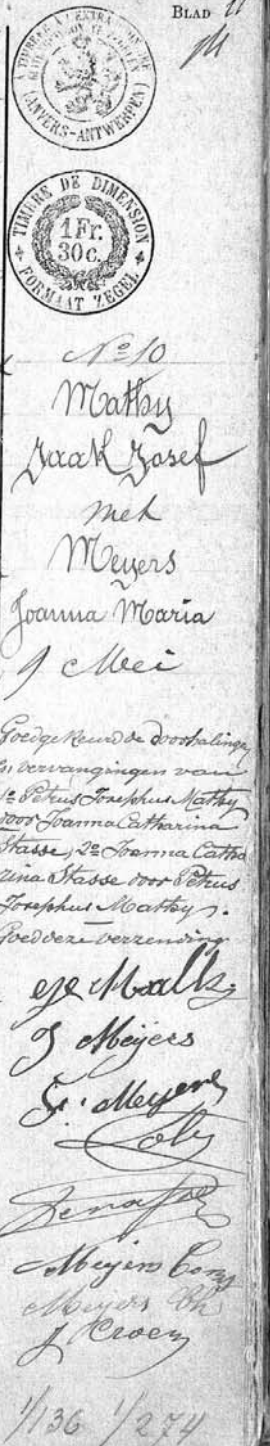 BLAD 11
TIMBRE A L'EXTRA
(ANVERS-ANTWERPEN)
TIMBRE DE DIMENSION
1 Fr.
30 c.
FORMAAT ZEGEL
Nº 10
Mathy
Jaak Josef
met
Meyers
Joanna Maria
9 Mei
Goedgekeurd de doorhalingen
en vervangingen van
1º Petrus Josephus Mathy
door Joanna Catharina
Stasse, 2º Joanna Catha
rina Stasse door Petrus
Josephus Mathy.
Goed deze verzending
J Meijers
Meyers
Meyers
Meyers Ch
J Croen
1/136 1/274